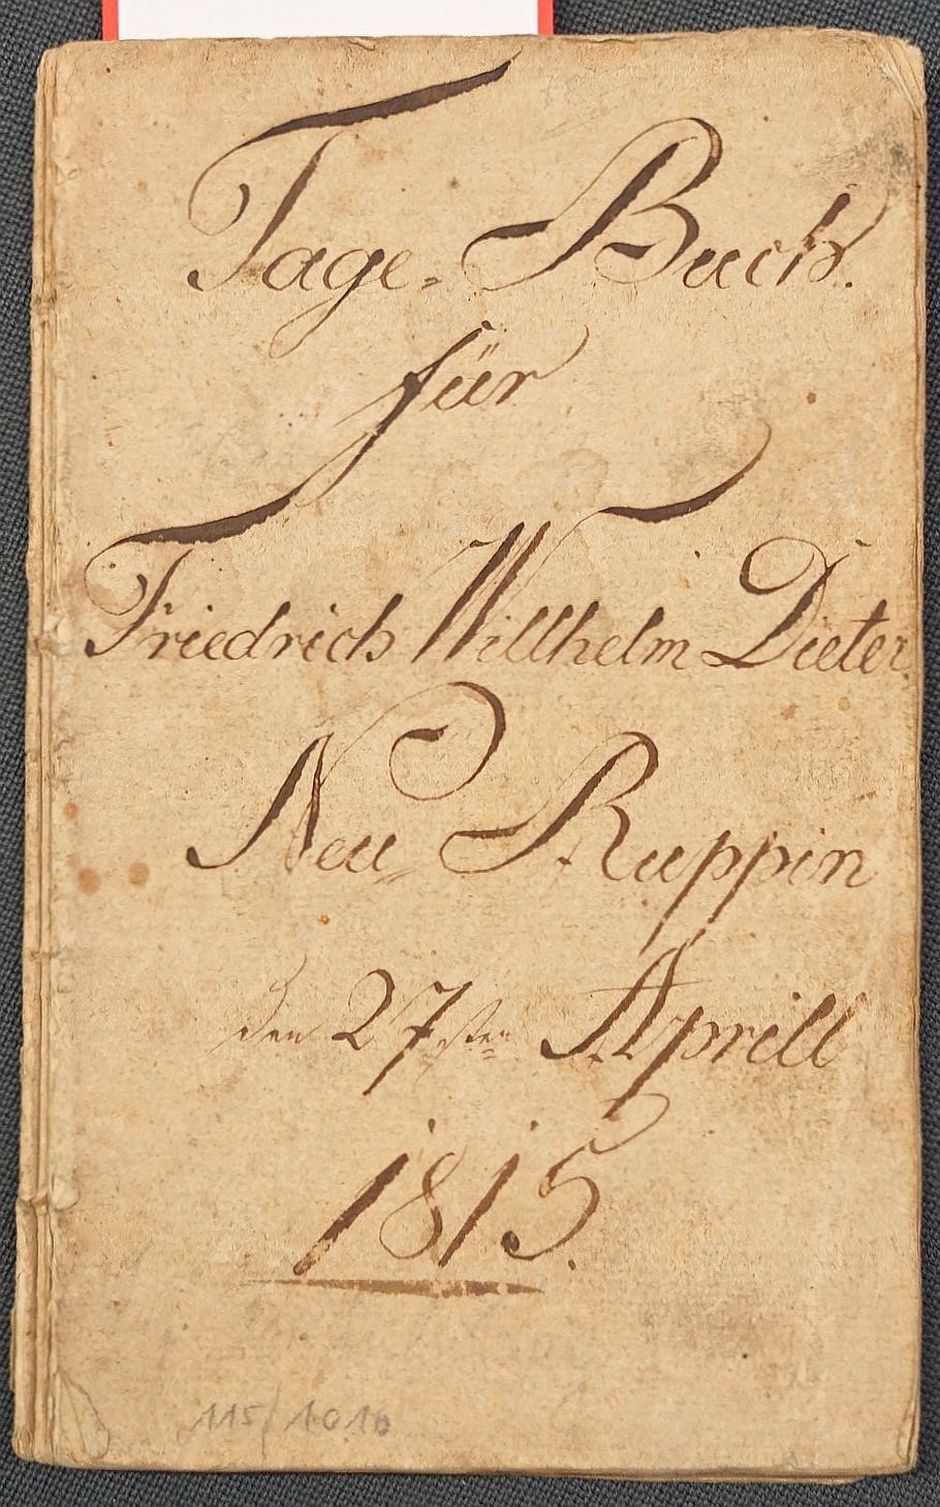 Tage-Buch.
für
Friedrich Willhelm Dieter.
Neu-Ruppin
den 27sten Aprill
1815.
115/1010